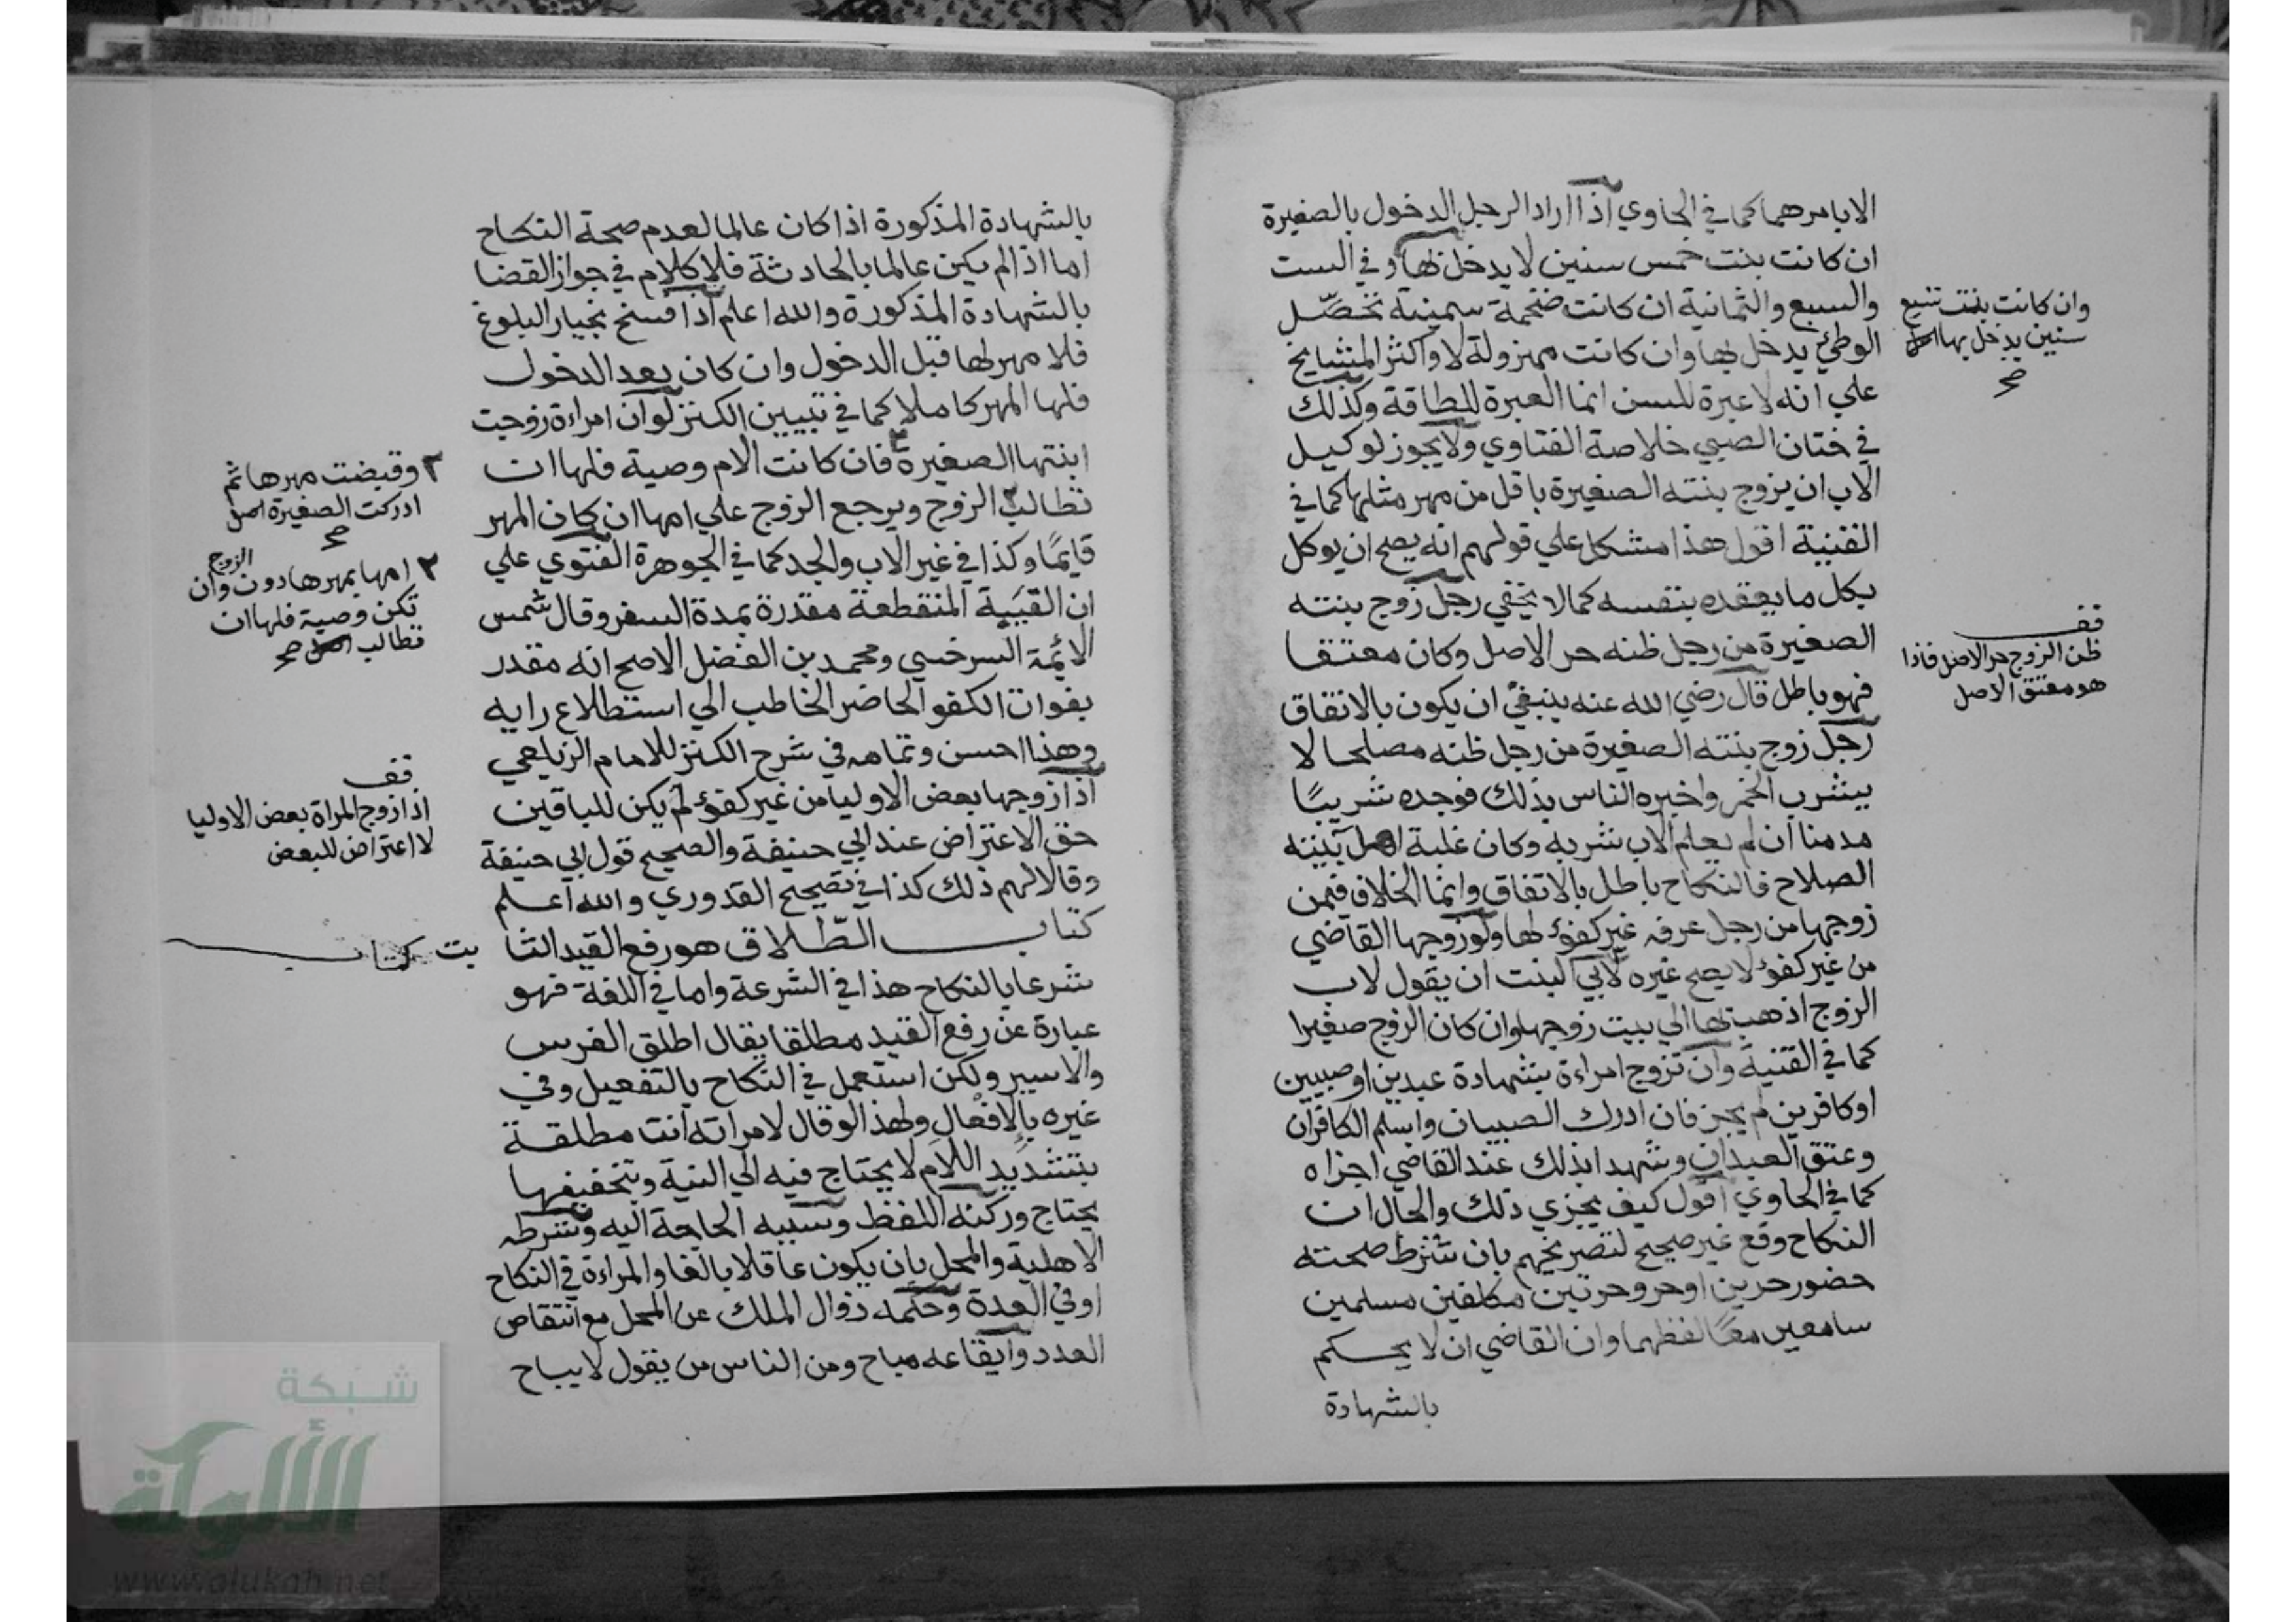 الابامرهما كما في الحاوي اذا اراد الرجل الدخول بالصغيرة
ان كانت بنت خمس سنين لا يدخل بها وفي الست
والسبع والثمانية ان كانت ضخمة سمينة تحصل
الوطئ يدخل بها وان كانت مهزولة لا واكثر المشايخ
علي انه لا عبرة للسن انما العبرة للطاقة وكذلك
في ختان الصبي خلاصة الفتاوي ولا يجوز لوكيل
الاب ان يزوج بنته الصغيرة باقل من مهر مثلها كما في
القنية اقول هذا مشكل علي قولهم انه يصح ان يوكل
بكل ما يعقده بنفسه كما لا يخفي رجل زوج بنته
الصغيرة من رجل ظنه حر الاصل وكان معتقا
فهو باطل قال رضي الله عنه ينبغي ان يكون بالاتفاق
رجل زوج بنته الصغيرة من رجل ظنه مصلحا لا
يشرب الخمر واخبره الناس بذلك فوجده شريبًا
مدمنا ان لم يعلم الاب بشربه وكان غلبة اهل بيته
الصلاح فالنكاح باطل بالاتفاق وانما الخلاف فيمن
زوجها من رجل عرفه غير كفؤ لها ولو زوجها القاضي
من غير كفؤ لا يصح غيره لابي البنت ان يقول لاب
الزوج اذهب بها الي بيت زوجها وان كان الزوج صغيرا
كما في القنية وان تزوج امراءة بشهادة عبدين او صبيين
او كافرين لم يجز فان ادرك الصبيان واسلم الكافران
وعتق العبدان وشهدا بذلك عند القاضي اجزاه
كما في الحاوي اقول كيف يجزي ذلك والحال ان
النكاح وقع غير صحيح لتصريحهم بان شرط صحته
حضور حرين او حر وحرتين مكلفين مسلمين
سامعين معًا لفظهما وان القاضي ان لا يحكم
بالشهادة
وان كانت بنت تسع
سنين يدخل بها اصل
صح
قف
ظن الزوج حر الاصل فاذا
هو معتق الاصل
بالشهادة المذكورة اذا كان عالما لعدم صحة النكاح
اما اذا لم يكن عالما بالحادثة فلا كلام في جواز القضا
بالشهادة المذكورة والله اعلم اذا فسخ بخيار البلوغ
فلا مهر لها قبل الدخول وان كان بعد الدخول
فلها المهر كاملا كما في تبيين الكنز لو ان امراءة زوجت
ابنتها الصغيرة ٢ فان كانت الام وصية فلها ان
تطالب ٢ الزوج ويرجع الزوج علي امها ان كان المهر
قايمًا وكذا في غير الاب والجد كما في الجوهرة الفتوي علي
ان الغيبة المنقطعة مقدرة بمدة السفر وقال شمس
الائمة السرخسي ومحمد بن الفضل الاصح انه مقدر
بفوات الكفو الحاضر الخاطب الي استطلاع رايه
وهذا احسن وتمامه في شرح الكنز للامام الزيلعي
اذا زوجها بعض الاوليا من غير كفؤ لم يكن للباقين
حق الاعتراض عند ابي حنيفة والصحيح قول ابي حنيفة
وقالا لهم ذلك كذا في تصحيح القدوري والله اعلم
كتاب الطّلاق هو رفع القيد الثا بت كتاب
شرعا بالنكاح هذا في الشرعة واما في اللغة فهو
عبارة عن رفع القيد مطلقا يقال اطلق الفرس
والاسير ولكن استعمل في النكاح بالتفعيل وفي
غيره بالافعال ولهذا لو قال لامراته انت مطلقة
بتشديد اللام لا يحتاج فيه الي النية وبتخفيفها
يحتاج وركنه اللفظ وسببه الحاجة اليه وشرطه
الاهلية والمحل بان يكون عاقلا بالغا والمراءة في النكاح
او في العدة وحكمه زوال الملك عن المحل مع انتقاص
العدد وايقاعه مباح ومن الناس من يقول لا يباح
٢ وقبضت مهرها ثم
ادركت الصغيرة اصل
صح
٢ امها بمهرها دون الزوج وان
تكن وصية فلها ان
تطالب اصل صح
قف
اذا زوج المراة بعض الاوليا
لا اعتراض للبعض
شبكة
الألوكة
www.alukah.net